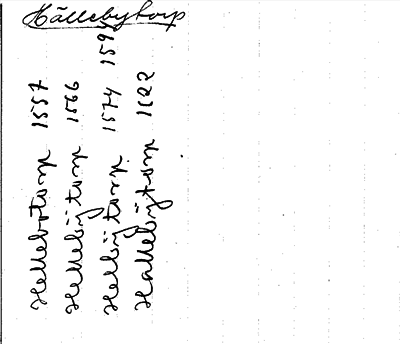 Hällebytorp
Hellebotorp 1557
Hellebÿtorp 1566
Helbÿtorp 1574 1594
Hallebÿtorp 1622